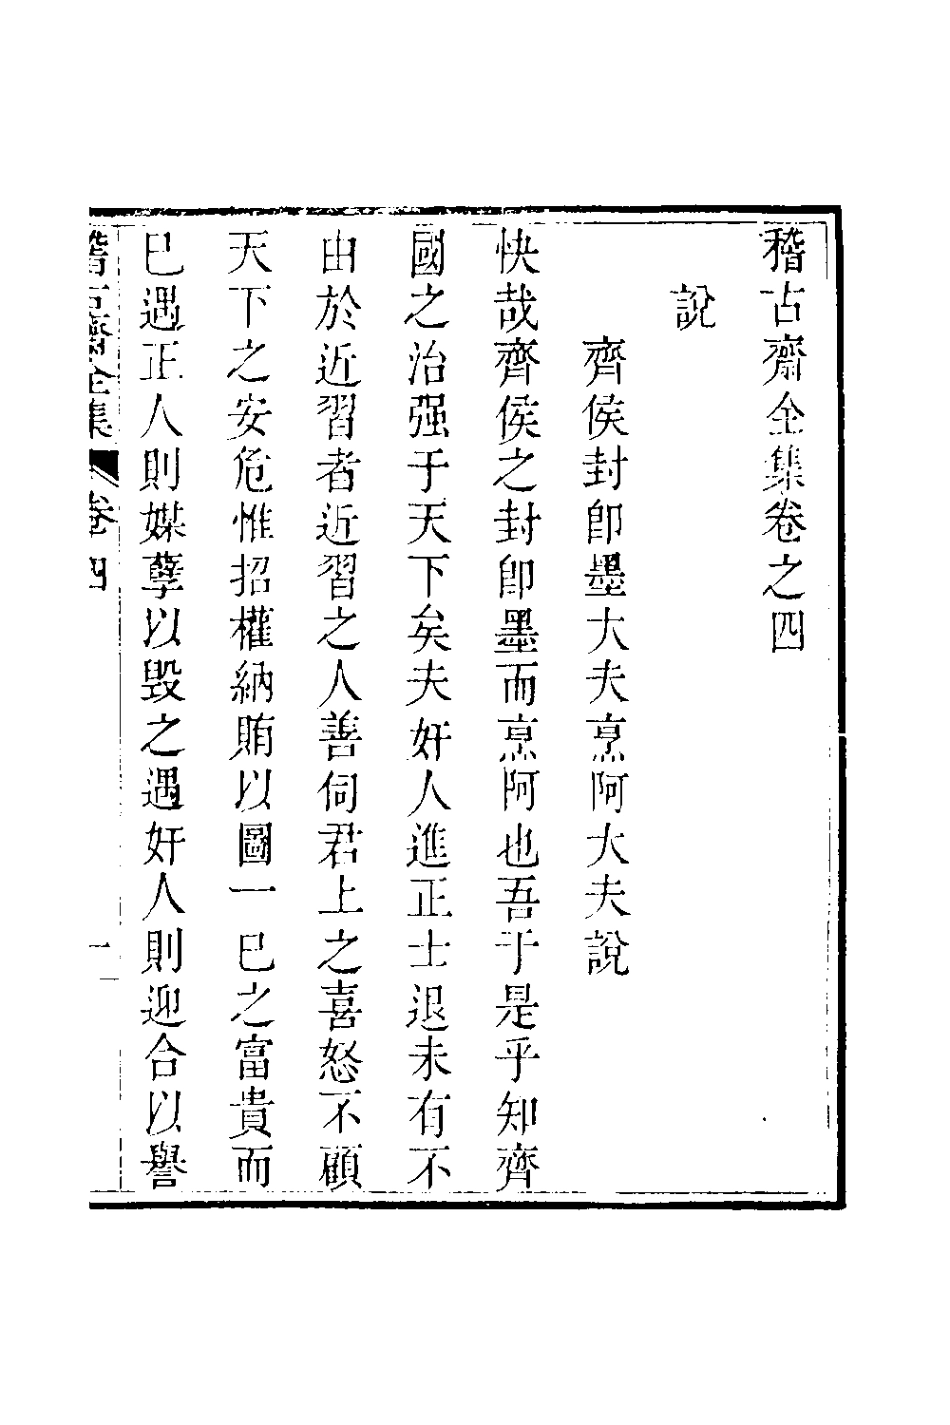 稽古齋全集卷之四
說
齊侯封卽墨大夫烹阿大夫說
快哉齊侯之封卽墨而烹阿也吾于是乎知齊
國之治强于天下矣夫奸人進正士退未有不
由於近習者近習之人善伺君上之喜怒不顧
天下之安危惟招權納賄以圖一已之富貴而
已遇正人則媒孽以毀之遇奸人則迎合以譽
稽古齋全集
卷四
一